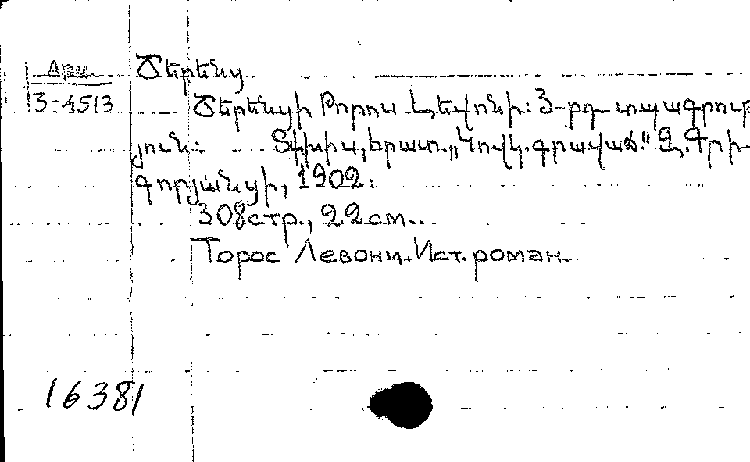 Արմ.
3-4513
Ծերենց
Ծերենցի Թորոս Լեվոնի: 3-րդ տպագրութ
յուն: Տփխիս, հրատ. „Կովկ. գրավաճ." Զ. Գրի-
գորյանցի, 1902.
308 стр., 22 см..
Торос Левони. Ист. роман.
16381